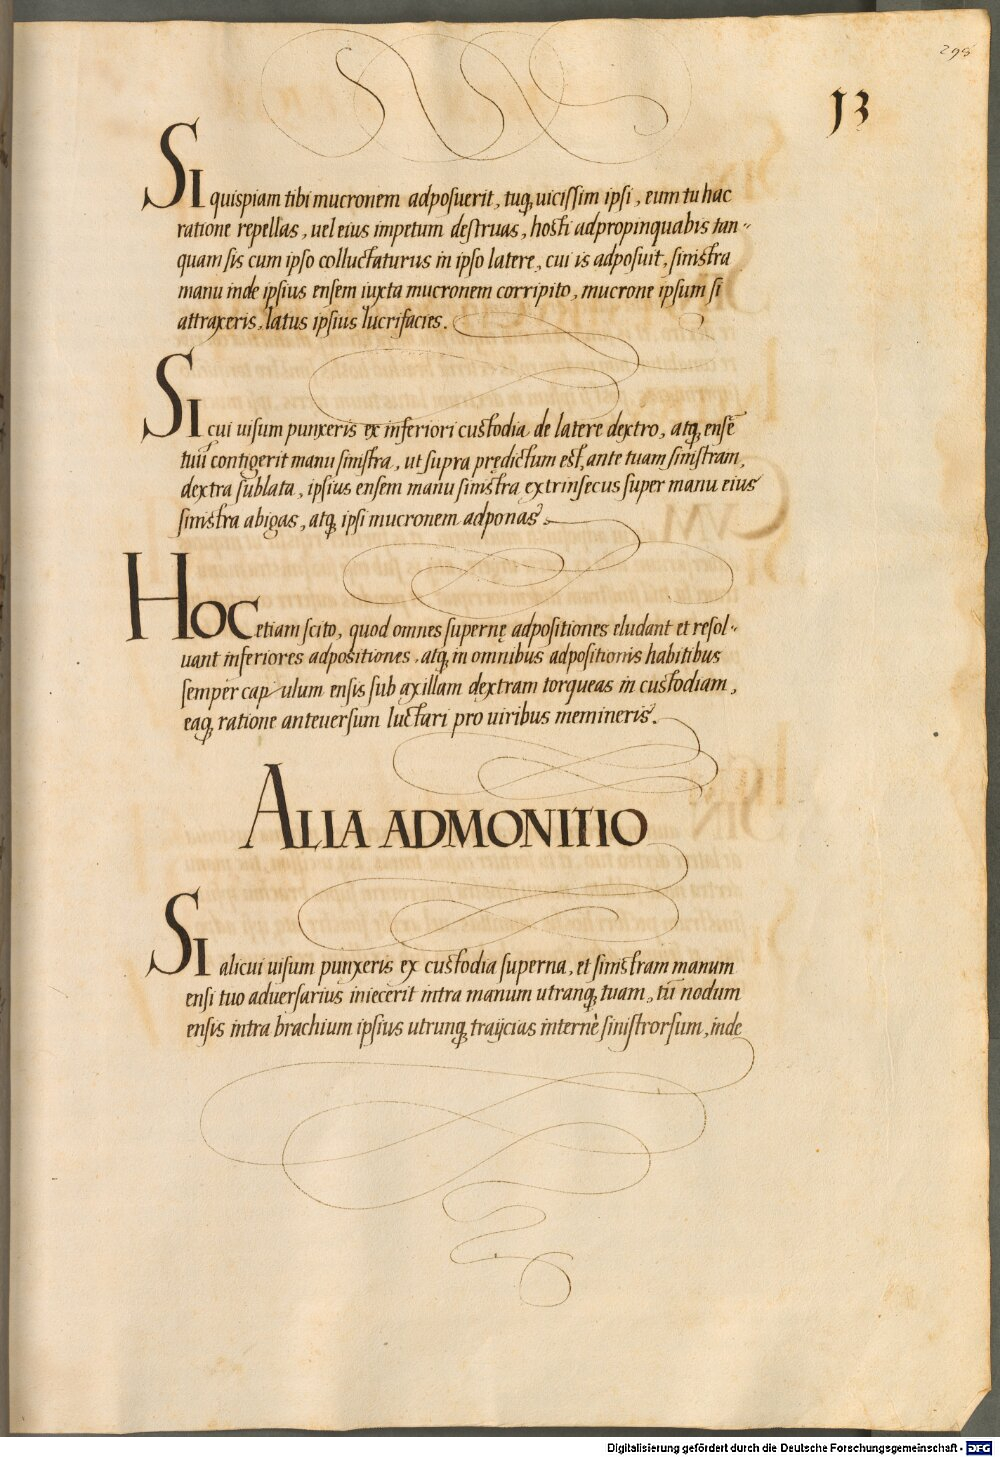 298
13
SI quispiam tibi mucronem adposuerit, tuq; uicissim ipsi, eum tu hac
ratione repellas, uel eius impetum destruas, hosti adpropinquabis tan-
quam sis cum ipso colluctaturus in ipso latere, cui is adposuit, sinistra
manu inde ipsius ensem iuxta mucronem corripito, mucrone ipsum si
attraxeris, latus ipsius lucrifacies.
SI cui uisum punxeris ex inferiori custodia de latere dextro, atq; ensẽ
tuũ contigerit manu sinistra, ut supra prędictum est, ante tuam sinistram,
dextra sublata, ipsius ensem manu sinistra extrinsecus super manu eius
sinistra abigas, atq; ipsi mucronem adponas.
HOC etiam scito, quod omnes supernę adpositiones eludant et resol-
uant inferiores adpositiones, atq; in omnibus adpositionis habitibus
semper capulum ensis sub axillam dextram torqueas in custodiam,
eaq; ratione anteuersum luctari pro uiribus memineris.
ALIA ADMONITIO
SI alicui uisum punxeris ex custodia superna, et sinistram manum
ensi tuo aduersarius iniecerit intra manum utranq; tuam, tũ nodum
ensis intra brachium ipsius utrunq; traijcias internè sinistrorsum, inde
Digitalisierung gefördert durch die Deutsche Forschungsgemeinschaft - DFG